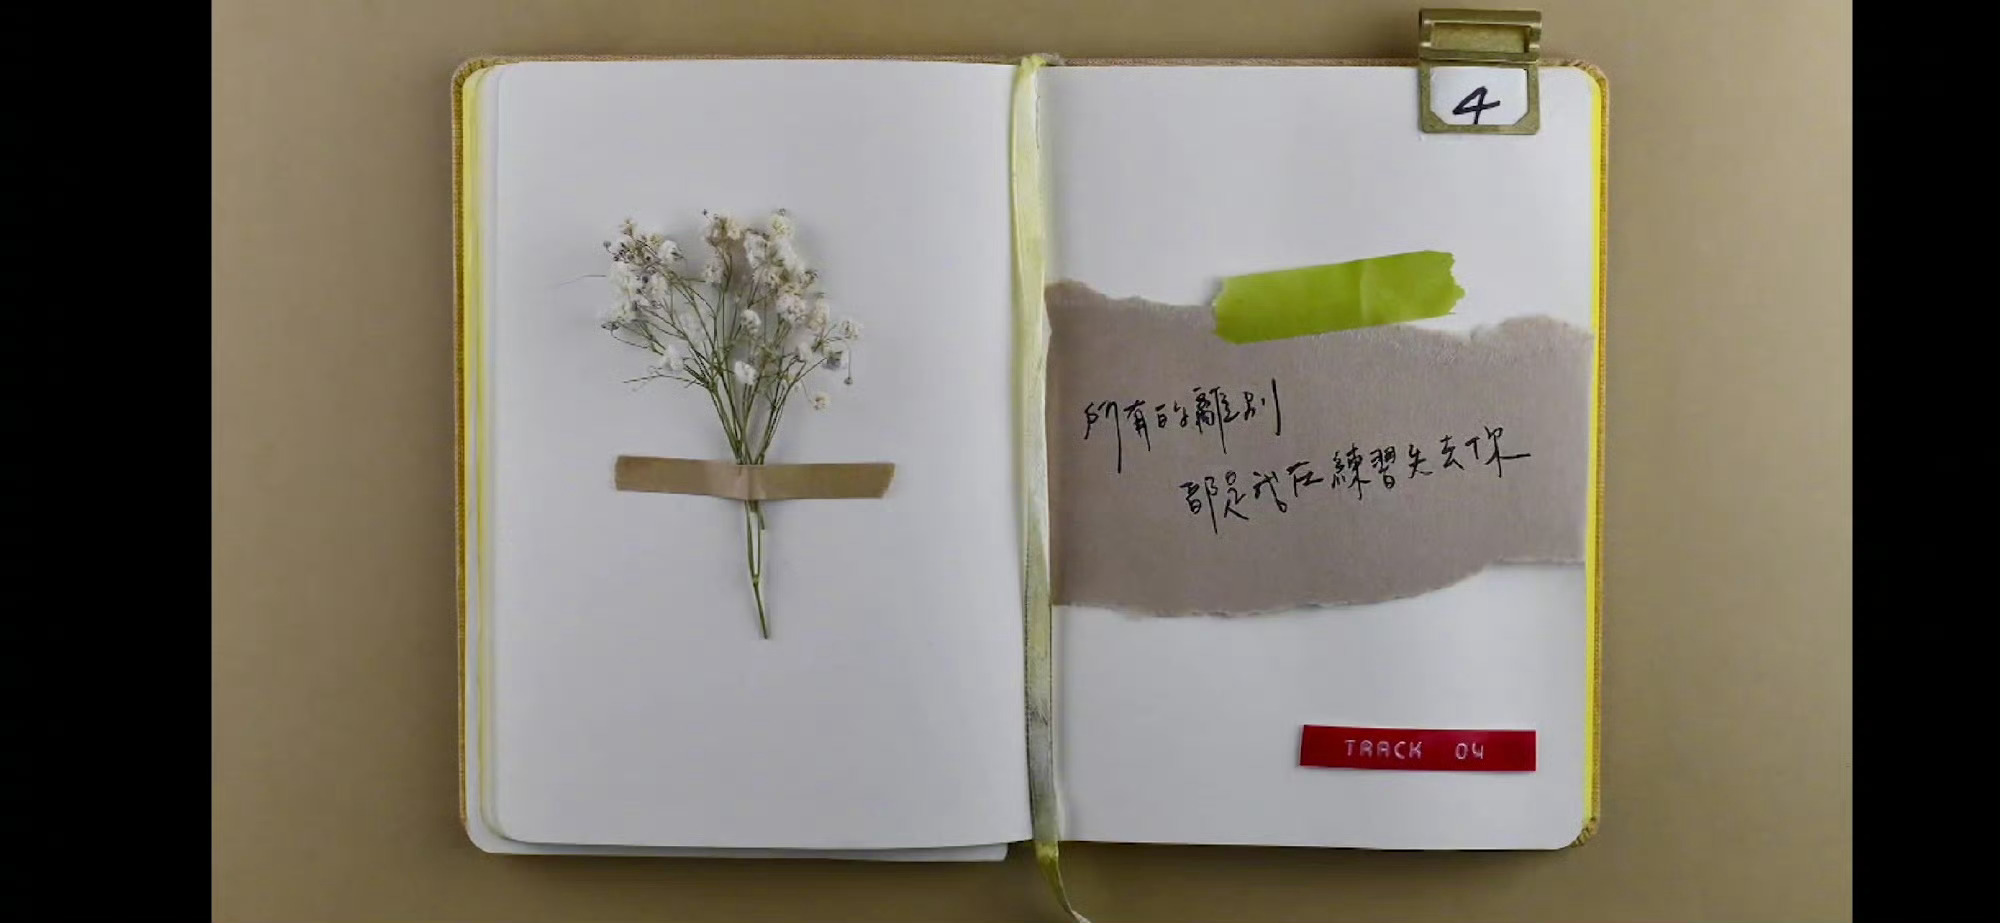 4
所有的離別
都是我在練習失去你
TRACK 04